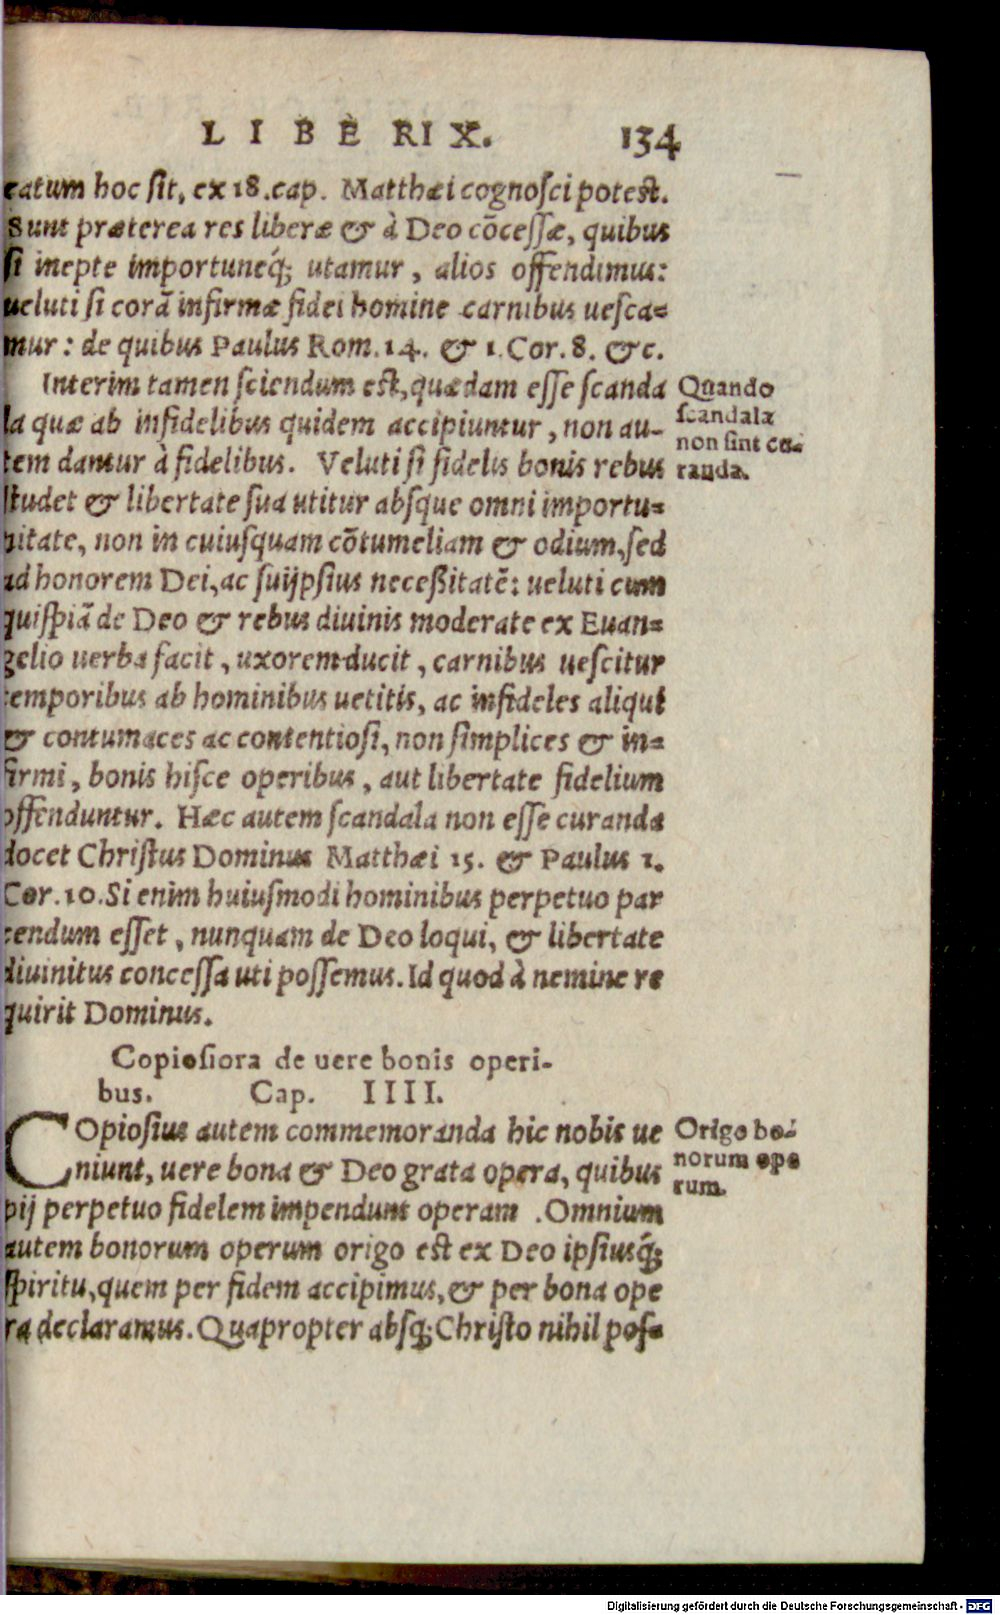 LIBER IX. 134
catum hoc sit, ex 18. cap. Matthæi cognosci potest.
Sunt præterea res liberæ & à Deo cōcessæ, quibus
si inepte importuneq́; utamur, alios offendimus:
ueluti si corā infirmæ fidei homine carnibus uesca=
mur: de quibus Paulus Rom. 14. & 1. Cor. 8. &c.
Interim tamen sciendum est, quædam esse scanda
la quæ ab infidelibus quidem accipiuntur, non au-
tem dantur à fidelibus. Veluti si fidelis bonis rebus
studet & libertate sua utitur absque omni importu=
nitate, non in cuiusquam cōtumeliam & odium, sed
ad honorem Dei, ac suijpsius neceßitatē: ueluti cum
quispiā de Deo & rebus diuinis moderate ex Euan=
gelio uerba facit, uxorem ducit, carnibus uescitur
temporibus ab hominibus uetitis, ac infideles aliqui
& contumaces ac contentiosi, non simplices & in=
firmi, bonis hisce operibus, aut libertate fidelium
offenduntur. Hæc autem scandala non esse curanda
docet Christus Dominus Matthæi 15. & Paulus 1.
Cor. 10. Si enim huiusmodi hominibus perpetuo par
cendum esset, nunquam de Deo loqui, & libertate
diuinitus concessa uti possemus. Id quod à nemine re
quirit Dominus.
Quando
scandala
non sint cu-
randa.
Copiosiora de uere bonis operi-
bus. Cap. IIII.
COpiosius autem commemoranda hic nobis ue
niunt, uere bona & Deo grata opera, quibus
pij perpetuo fidelem impendunt operam. Omnium
autem bonorum operum origo est ex Deo ipsiusq́;
spiritu, quem per fidem accipimus, & per bona ope
ra declaramus. Quapropter absq; Christo nihil pos=
Origo bo-
norum ope
rum.
Digitalisierung gefördert durch die Deutsche Forschungsgemeinschaft - DFG